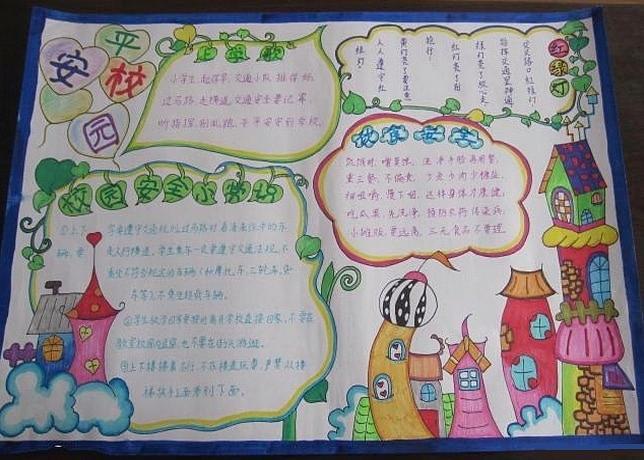 平安校园
上学歌
小学生,起得早,交通小队排得好,
过马路,走横道,交通安全要记牢,
听指挥,别乱跑,平平安安到学校。
红绿灯
交叉路口红绿灯,
指挥交通显神通,
绿灯亮了放心走,
红灯亮了别
抢行,
黄灯亮了要注意,
人人遵守红
绿灯。
饮食安全
饥饿时,嘴莫馋,洗净手脸再用餐,
重三餐,不偏食,
细咀嚼,慢下咽,这样身体才康健;
吃瓜果,先洗净,预防农药传染病;
小摊贩,要远离,三无食品不要理
校园安全小常识
①上下学要遵守交通规则,过马路时看清来往中的车辆,要
走人行横道,学生乘车一定要遵守交通法规,不
要坐不符合规定的车辆(如摩托车,三轮车,货
车等),不乘坐超载车辆。
②学生放学回家要按时离开学校直接回家,不要在
教室校园内逗留,也不要在街头游逛。
③上下楼梯靠右行,不在楼道玩耍,严禁从楼
梯扶手上面滑到下面。